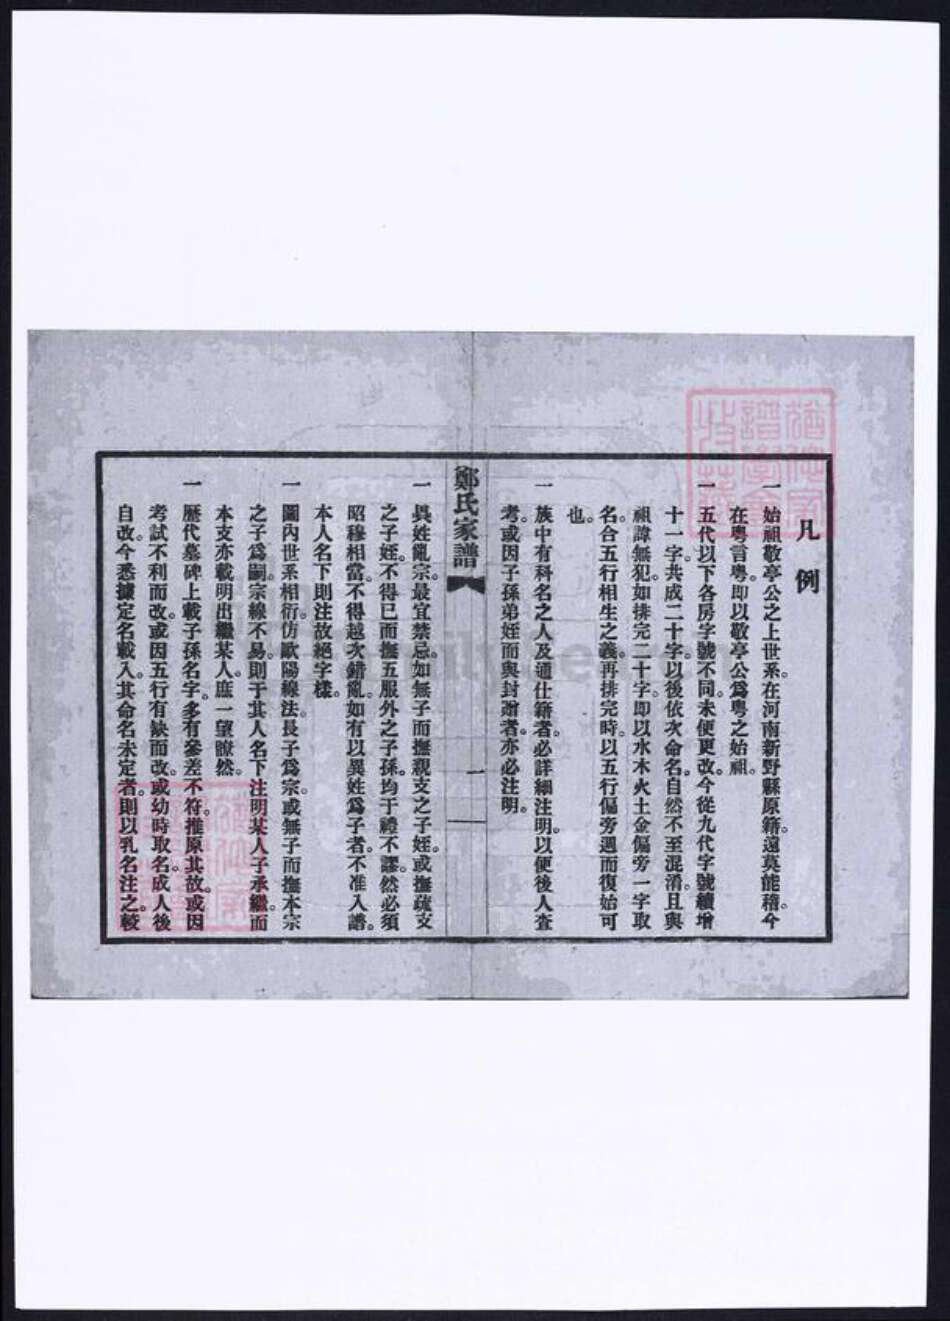 凡例
一始祖敬亭公之上世系在河南新野縣原籍。遠莫能稽。今
在粤言粤。即以敬亭公爲粤之始祖。
一五代以下各房字號不同。未便更改。今從九代字號續增
十一字。共成二十字。以後依次命名。自然不至混淆。且與
祖諱無犯。如排完二十字。即以水木火土金偏旁一字取
名。合五行相生之義。再排完時。以五行偏旁週而復始可
也。
一族中有科名之人及通仕籍者。必詳細注明。以便後人查
考。或因子孫弟姪而與封贈者。亦必注明。
鄭氏家譜
一
一異姓亂宗。最宜禁忌。如無子而撫親支之子姪。或撫疏支
之子姪。不得已而撫五服外之子孫。均于禮不謬。然必須
昭穆相當。不得越次錯亂。如有以異姓爲子者。不准入譜。
本人名下則注故絕字樣。
一圖內世系相衍仿歐陽線法。長子爲宗。或無子而撫本宗
之子爲嗣。宗線不易。則于其人名下注明某人子承繼。而
本支亦載明出繼某人。庶一望瞭然。
一歷代墓碑上載子孫名字。多有參差不符。推原其故。或因
考試不利而改。或因五行有缺而改。或幼時取名。成人後
自改。今悉據定名載入。其命名未定者。則以乳名注之。較